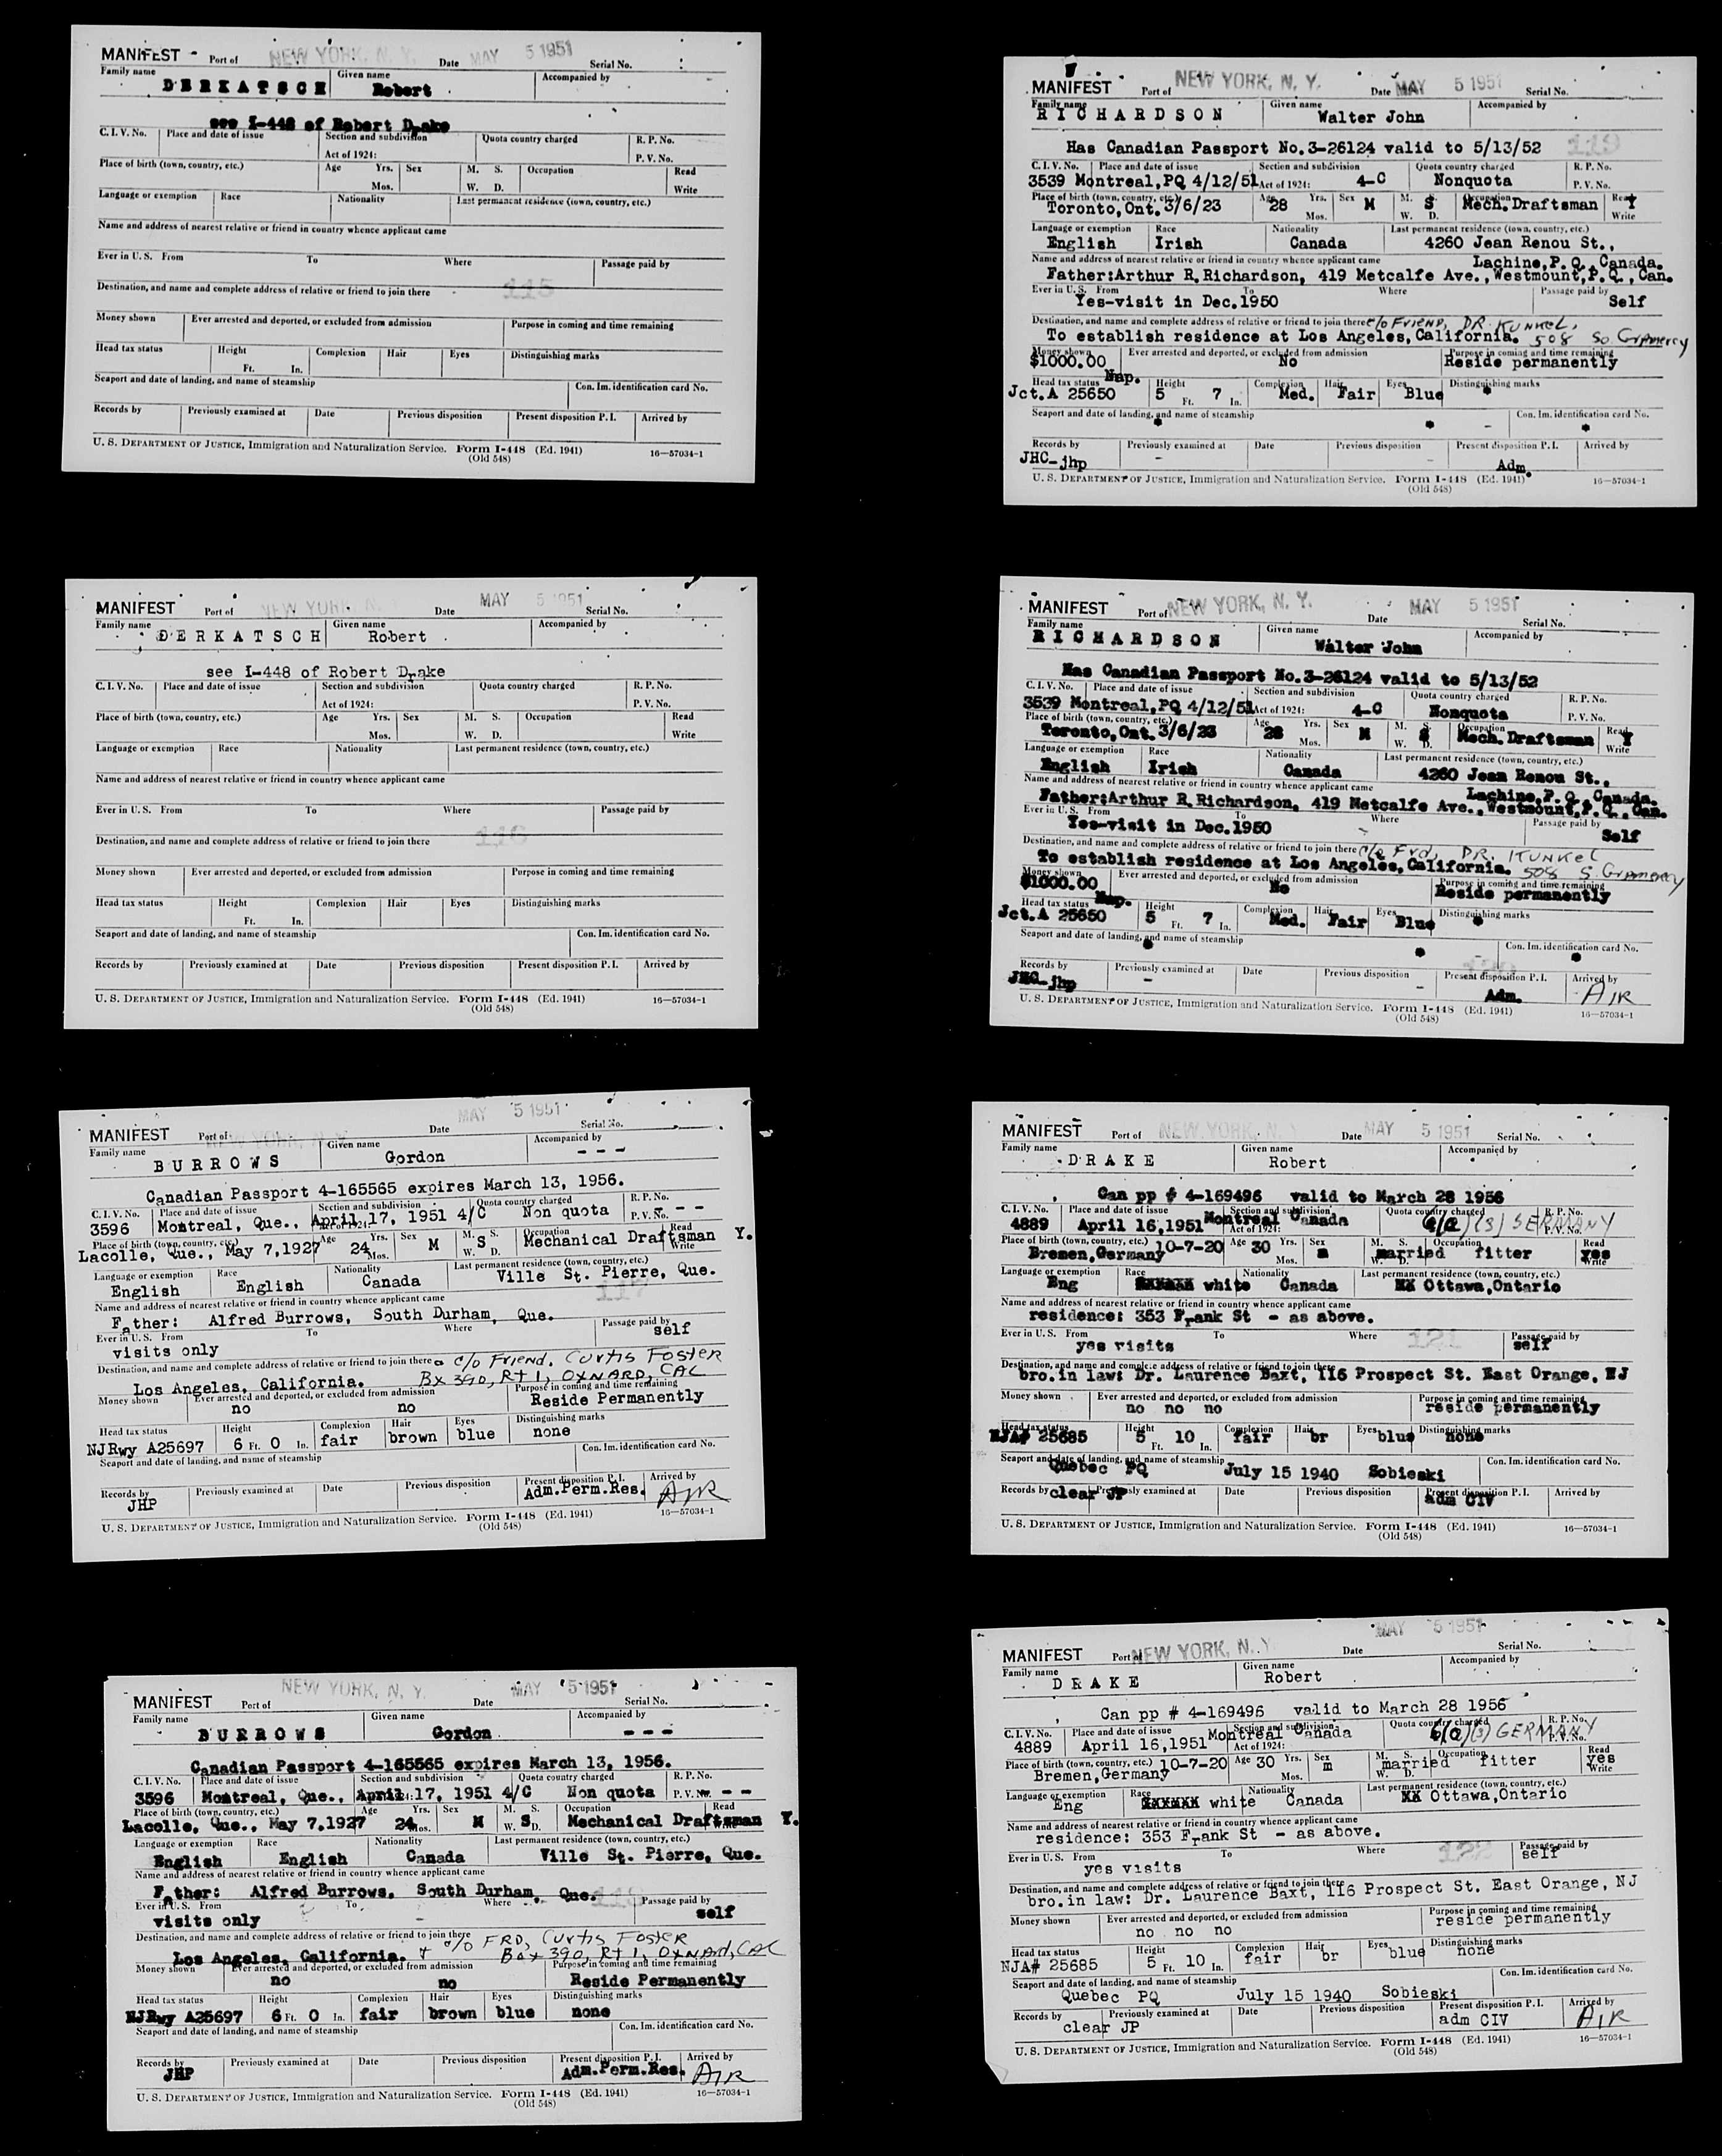 MANIFEST Port of NEW YORK, N. Y. Date MAY 5 1951 Serial No.
Family name Given name Accompanied by
DERKATSCH Robert
see I-448 of Robert Drake
C. I. V. No. Place and date of issue Section and subdivision Quota country charged R. P. No.
Act of 1924: P. V. No.
Place of birth (town, country, etc.) Age Yrs. Sex M. S. Occupation Read
Mos. W. D. Write
Language or exemption Race Nationality Last permanent residence (town, country, etc.)
Name and address of nearest relative or friend in country whence applicant came
Ever in U. S. From To Where Passage paid by
Destination, and name and complete address of relative or friend to join there 115
Money shown Ever arrested and deported, or excluded from admission Purpose in coming and time remaining
Head tax status Height Complexion Hair Eyes Distinguishing marks
Ft. In.
Seaport and date of landing, and name of steamship Con. Im. identification card No.
Records by Previously examined at Date Previous disposition Present disposition P. I. Arrived by
U. S. DEPARTMENT OF JUSTICE, Immigration and Naturalization Service. Form I-448 (Ed. 1941) 16—57034-1
(Old 548)
MANIFEST Port of NEW YORK, N. Y. Date MAY 5 1951 Serial No.
Family name Given name Accompanied by
RICHARDSON Walter John
Has Canadian Passport No.3-26124 valid to 5/13/52 119
C. I. V. No. Place and date of issue Section and subdivision Quota country charged R. P. No.
3539 Montreal,PQ 4/12/51 Act of 1924: 4-C Nonquota P. V. No.
Place of birth (town, country, etc.) Age Yrs. Sex M. S. Occupation Read
Toronto,Ont. 3/6/23 28 Mos. M W. S D. Mech.Draftsman Y Write
Language or exemption Race Nationality Last permanent residence (town, country, etc.)
English Irish Canada 4260 Jean Renou St.,
Name and address of nearest relative or friend in country whence applicant came Lachine,P.Q., Canada.
Father:Arthur R.Richardson, 419 Metcalfe Ave.,Westmount,P.Q.,Can.
Ever in U. S. From To Where Passage paid by
Yes-visit in Dec.1950 Self
Destination, and name and complete address of relative or friend to join there c/o FRIEND, DR. KUNKEL,
To establish residence at Los Angeles,California. 508 So Gramercy
Money shown Ever arrested and deported, or excluded from admission Purpose in coming and time remaining
$1000.00 No Reside permanently
Head tax status Nap. Height Complexion Hair Eyes Distinguishing marks
Jct.A 25650 5 Ft. 7 In. Med. Fair Blue
Seaport and date of landing, and name of steamship Con. Im. identification card No.
Records by Previously examined at Date Previous disposition Present disposition P. I. Arrived by
JHC-jhp - - Adm.
U. S. DEPARTMENT OF JUSTICE, Immigration and Naturalization Service. Form I-448 (Ed. 1941) 16—57034-1
(Old 548)
MANIFEST Port of NEW YORK, N. Y. Date MAY 5 1951 Serial No.
Family name Given name Accompanied by
DERKATSCH Robert
see I-448 of Robert Drake
C. I. V. No. Place and date of issue Section and subdivision Quota country charged R. P. No.
Act of 1924: P. V. No.
Place of birth (town, country, etc.) Age Yrs. Sex M. S. Occupation Read
Mos. W. D. Write
Language or exemption Race Nationality Last permanent residence (town, country, etc.)
Name and address of nearest relative or friend in country whence applicant came
Ever in U. S. From To Where Passage paid by
Destination, and name and complete address of relative or friend to join there 116
Money shown Ever arrested and deported, or excluded from admission Purpose in coming and time remaining
Head tax status Height Complexion Hair Eyes Distinguishing marks
Ft. In.
Seaport and date of landing, and name of steamship Con. Im. identification card No.
Records by Previously examined at Date Previous disposition Present disposition P. I. Arrived by
U. S. DEPARTMENT OF JUSTICE, Immigration and Naturalization Service. Form I-448 (Ed. 1941) 16—57034-1
(Old 548)
MANIFEST Port of NEW YORK, N. Y. Date MAY 5 1951 Serial No.
Family name Given name Accompanied by
RICHARDSON Walter John
Has Canadian Passport No.3-26124 valid to 5/13/52
C. I. V. No. Place and date of issue Section and subdivision Quota country charged R. P. No.
3539 Montreal,PQ 4/12/51 Act of 1924: 4-C Nonquota P. V. No.
Place of birth (town, country, etc.) Age Yrs. Sex M. S. Occupation Read
Toronto,Ont. 3/6/23 28 Mos. M W. S D. Mech.Draftsman Y Write
Language or exemption Race Nationality Last permanent residence (town, country, etc.)
English Irish Canada 4260 Jean Renou St.,
Name and address of nearest relative or friend in country whence applicant came Lachine,P.Q., Canada.
Father:Arthur R.Richardson, 419 Metcalfe Ave.,Westmount,P.Q.,Can.
Ever in U. S. From To Where Passage paid by
Yes-visit in Dec.1950 Self
Destination, and name and complete address of relative or friend to join there c/o Frd, DR. KUNKEL
To establish residence at Los Angeles,California. 508 S. Gramercy
Money shown Ever arrested and deported, or excluded from admission Purpose in coming and time remaining
$1000.00 No Reside permanently
Head tax status Nap. Height Complexion Hair Eyes Distinguishing marks
Jct.A 25650 5 Ft. 7 In. Med. Fair Blue
Seaport and date of landing, and name of steamship Con. Im. identification card No.
Records by Previously examined at Date Previous disposition Present disposition P. I. Arrived by
JHC-jhp - - Adm. AIR
U. S. DEPARTMENT OF JUSTICE, Immigration and Naturalization Service. Form I-448 (Ed. 1941) 16—57034-1
(Old 548)
MANIFEST Port of NEW YORK, N. Y. Date MAY 5 1951 Serial No.
Family name Given name Accompanied by
BURROWS Gordon - - -
Canadian Passport 4-165565 expires March 13, 1956.
C. I. V. No. Place and date of issue Section and subdivision Quota country charged R. P. No.
3596 Montreal, Que., April 17, 1951 4/C Non quota P. V. No. - - -
Place of birth (town, country, etc.) Age Yrs. Sex M. S. Occupation Read
Lacolle, Que., May 7,1927 24 Mos. M W. S D. Mechanical Draftsman Write Y.
Language or exemption Race Nationality Last permanent residence (town, country, etc.)
English English Canada Ville St. Pierre, Que.
Name and address of nearest relative or friend in country whence applicant came 117
Father: Alfred Burrows, South Durham, Que.
Ever in U. S. From To Where Passage paid by
visits only self
Destination, and name and complete address of relative or friend to join there c/o Friend. Curtis Foster
Los Angeles, California. Bx 390, Rt 1, OXNARD, CAL
Money shown Ever arrested and deported, or excluded from admission Purpose in coming and time remaining
no no Reside Permanently
Head tax status Height Complexion Hair Eyes Distinguishing marks
NJRwy A25697 6 Ft. 0 In. fair brown blue none
Seaport and date of landing, and name of steamship Con. Im. identification card No.
Records by Previously examined at Date Previous disposition Present disposition P. I. Arrived by
JHP Adm.Perm.Res. AIR
U. S. DEPARTMENT OF JUSTICE, Immigration and Naturalization Service. Form I-448 (Ed. 1941) 16—57034-1
(Old 548)
MANIFEST Port of NEW YORK, N. Y. Date MAY 5 1951 Serial No.
Family name Given name Accompanied by
DRAKE Robert
Can pp # 4-169496 valid to March 28 1956
C. I. V. No. Place and date of issue Section and subdivision Quota country charged R. P. No.
4889 April 16,1951 Montreal Canada Act of 1924: (3) GERMANY P. V. No.
Place of birth (town, country, etc.) Age Yrs. Sex M. S. Occupation Read
Bremen,Germany 10-7-20 30 Mos. m W. D. married fitter yes Write
Language or exemption Race Nationality Last permanent residence (town, country, etc.)
Eng white Canada XX Ottawa,Ontario
Name and address of nearest relative or friend in country whence applicant came
residence: 353 Frank St - as above.
Ever in U. S. From To Where 121 Passage paid by
yes visits self
Destination, and name and complete address of relative or friend to join there
bro.in law: Dr. Laurence Baxt, 116 Prospect St. East Orange, NJ
Money shown Ever arrested and deported, or excluded from admission Purpose in coming and time remaining
no no no reside permanently
Head tax status Height Complexion Hair Eyes Distinguishing marks
NJA# 25685 5 Ft. 10 In. fair br blue none
Seaport and date of landing, and name of steamship Con. Im. identification card No.
Quebec PQ July 15 1940 Sobieski
Records by Previously examined at Date Previous disposition Present disposition P. I. Arrived by
clear JP adm CIV
U. S. DEPARTMENT OF JUSTICE, Immigration and Naturalization Service. Form I-448 (Ed. 1941) 16—57034-1
(Old 548)
MANIFEST Port of NEW YORK, N. Y. Date MAY 5 1951 Serial No.
Family name Given name Accompanied by
BURROWS Gordon - - -
Canadian Passport 4-165565 expires March 13, 1956.
C. I. V. No. Place and date of issue Section and subdivision Quota country charged R. P. No.
3596 Montreal, Que., April 17, 1951 4/C Non quota P. V. No. - - -
Place of birth (town, country, etc.) Age Yrs. Sex M. S. Occupation Read
Lacolle, Que., May 7,1927 24 Mos. M W. S D. Mechanical Draftsman Y.
Language or exemption Race Nationality Last permanent residence (town, country, etc.)
English English Canada Ville St. Pierre, Que.
Name and address of nearest relative or friend in country whence applicant came
Father: Alfred Burrows, South Durham, Que.
Ever in U. S. From To Where Passage paid by
visits only self
Destination, and name and complete address of relative or friend to join there c/o FRD, Curtis Foster
Los Angeles, California. Box 390, Rt 1, OXNARD, CAL
Money shown Ever arrested and deported, or excluded from admission Purpose in coming and time remaining
no no Reside Permanently
Head tax status Height Complexion Hair Eyes Distinguishing marks
NJRwy A25697 6 Ft. 0 In. fair brown blue none
Seaport and date of landing, and name of steamship Con. Im. identification card No.
Records by Previously examined at Date Previous disposition Present disposition P. I. Arrived by
JHP Adm.Perm.Res. AIR
U. S. DEPARTMENT OF JUSTICE, Immigration and Naturalization Service. Form I-448 (Ed. 1941) 16—57034-1
(Old 548)
MANIFEST Port of NEW YORK, N. Y. Date MAY 5 1951 Serial No.
Family name Given name Accompanied by
DRAKE Robert
Can pp # 4-169496 valid to March 28 1956
C. I. V. No. Place and date of issue Section and subdivision Quota country charged R. P. No.
4889 April 16,1951 Montreal Canada Act of 1924: (3) GERMANY P. V. No.
Place of birth (town, country, etc.) Age Yrs. Sex M. S. Occupation Read
Bremen,Germany 10-7-20 30 Mos. m W. D. married fitter yes Write
Language or exemption Race Nationality Last permanent residence (town, country, etc.)
Eng white Canada XX Ottawa,Ontario
Name and address of nearest relative or friend in country whence applicant came
residence: 353 Frank St - as above.
Ever in U. S. From To Where 122 Passage paid by
yes visits self
Destination, and name and complete address of relative or friend to join there
bro.in law: Dr. Laurence Baxt, 116 Prospect St. East Orange, NJ
Money shown Ever arrested and deported, or excluded from admission Purpose in coming and time remaining
no no no reside permanently
Head tax status Height Complexion Hair Eyes Distinguishing marks
NJA# 25685 5 Ft. 10 In. fair br blue none
Seaport and date of landing, and name of steamship Con. Im. identification card No.
Quebec PQ July 15 1940 Sobieski
Records by Previously examined at Date Previous disposition Present disposition P. I. Arrived by
clear JP adm CIV AIR
U. S. DEPARTMENT OF JUSTICE, Immigration and Naturalization Service. Form I-448 (Ed. 1941) 16—57034-1
(Old 548)